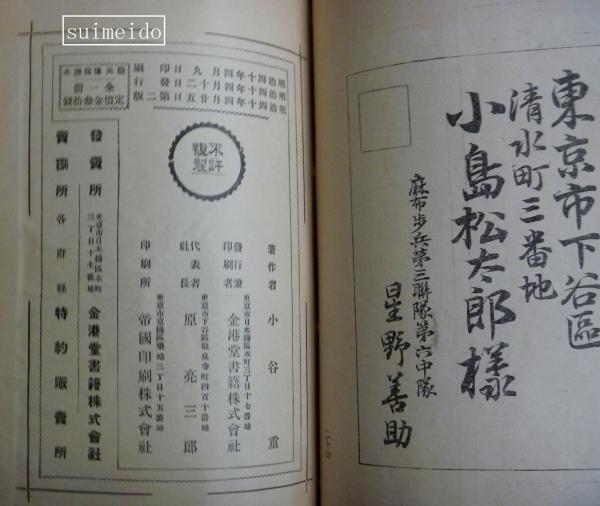 東京市下谷區
清水町三番地
小島松太郎様
麻布歩兵第三聯隊第六中隊
星野善助
suimeido
明治四十四年四月九日印刷
明治四十四年四月十二日發行
明治四十四年四月廿五日第二版
全一冊
定價金參拾錢
不許
複製
著作者 小谷重
發行兼印刷者
東京市日本橋區本町三丁目十七番地
金港堂書籍株式會社
社長
代表者
東京市下谷區龍泉寺町四百十番地
原亮三郎
印刷所
東京市京橋區築地三丁目十五番地
帝國印刷株式會社
發賣所
東京市日本橋區本町三丁目十七番地
金港堂書籍株式會社
賣捌所 各府縣 特約販賣所